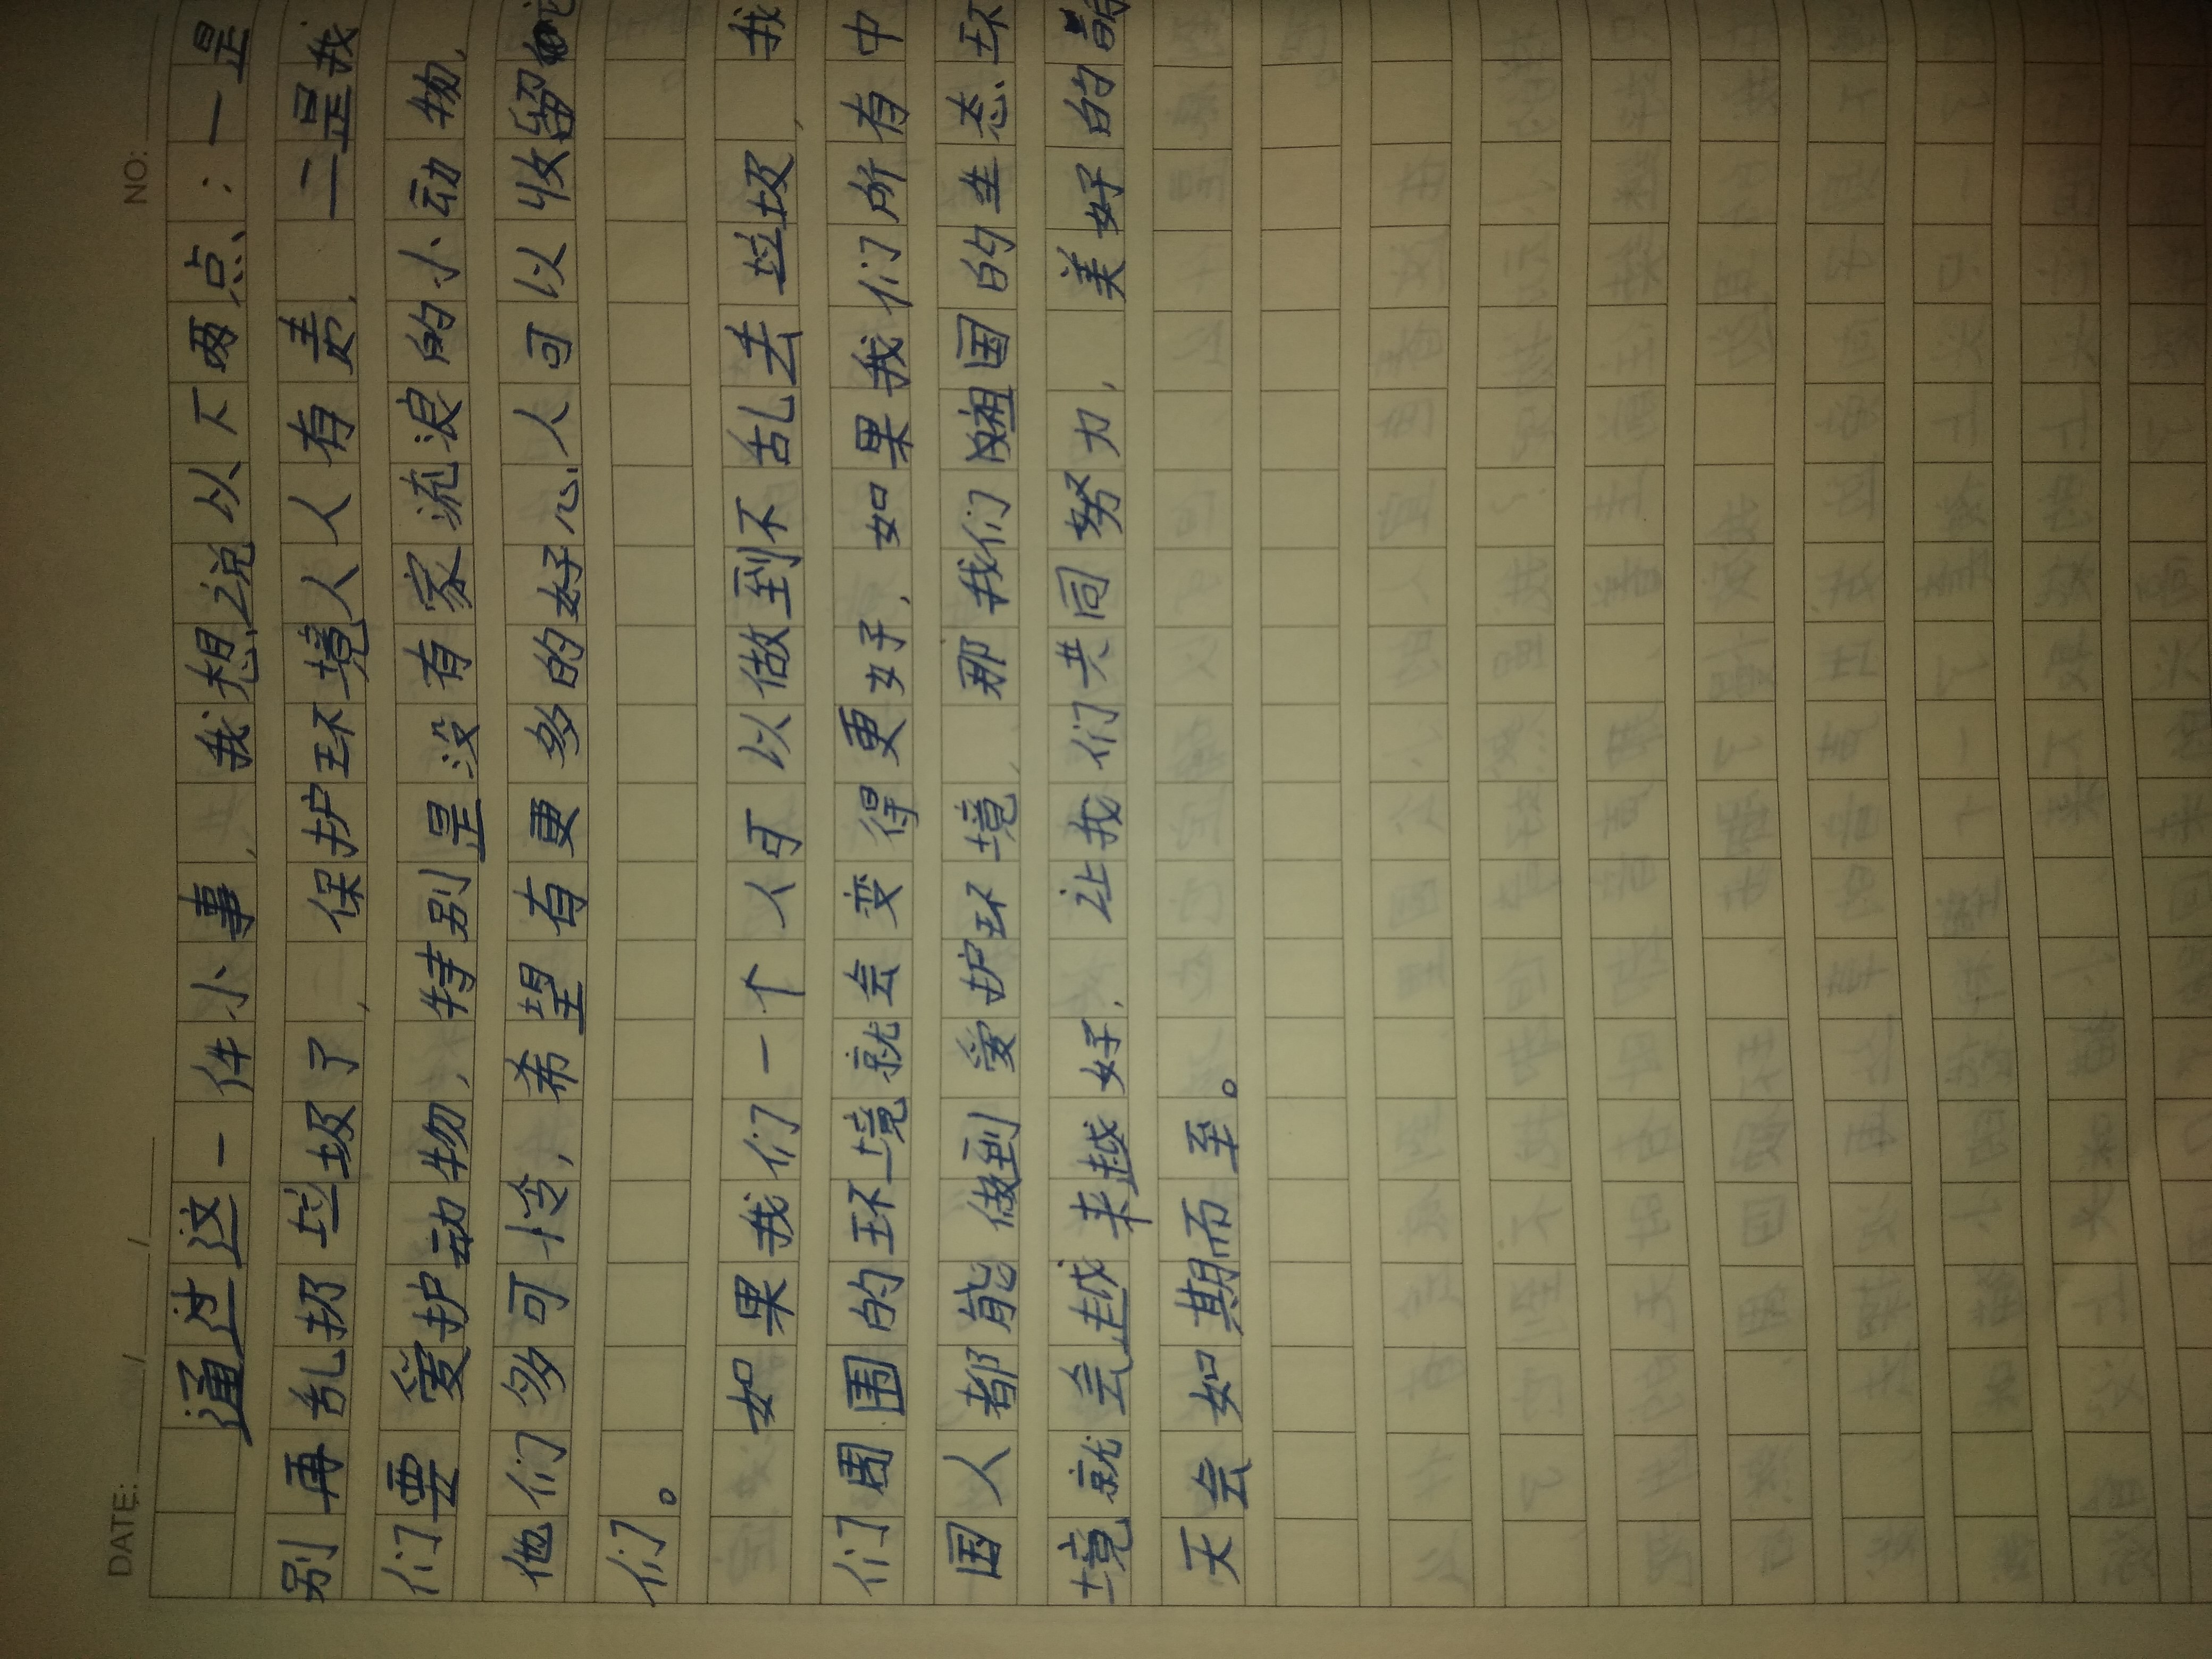 DATE: / / NO:
通过这一件小事,我想说以下两点:一是
别再乱扔垃圾了,保护环境人人有责,二是我
们要爱护动物,特别是没有家流浪的小动物,
他们多可怜,希望有更多的好心人可以收留
们。
如果我们一个人可以做到不乱丢垃圾,我
们周围的环境就会变得更好,如果我们所有中
国人都能做到爱护环境,那我们祖国的生态环
境就会越来越好,让我们共同努力,美好的
天会如期而至。